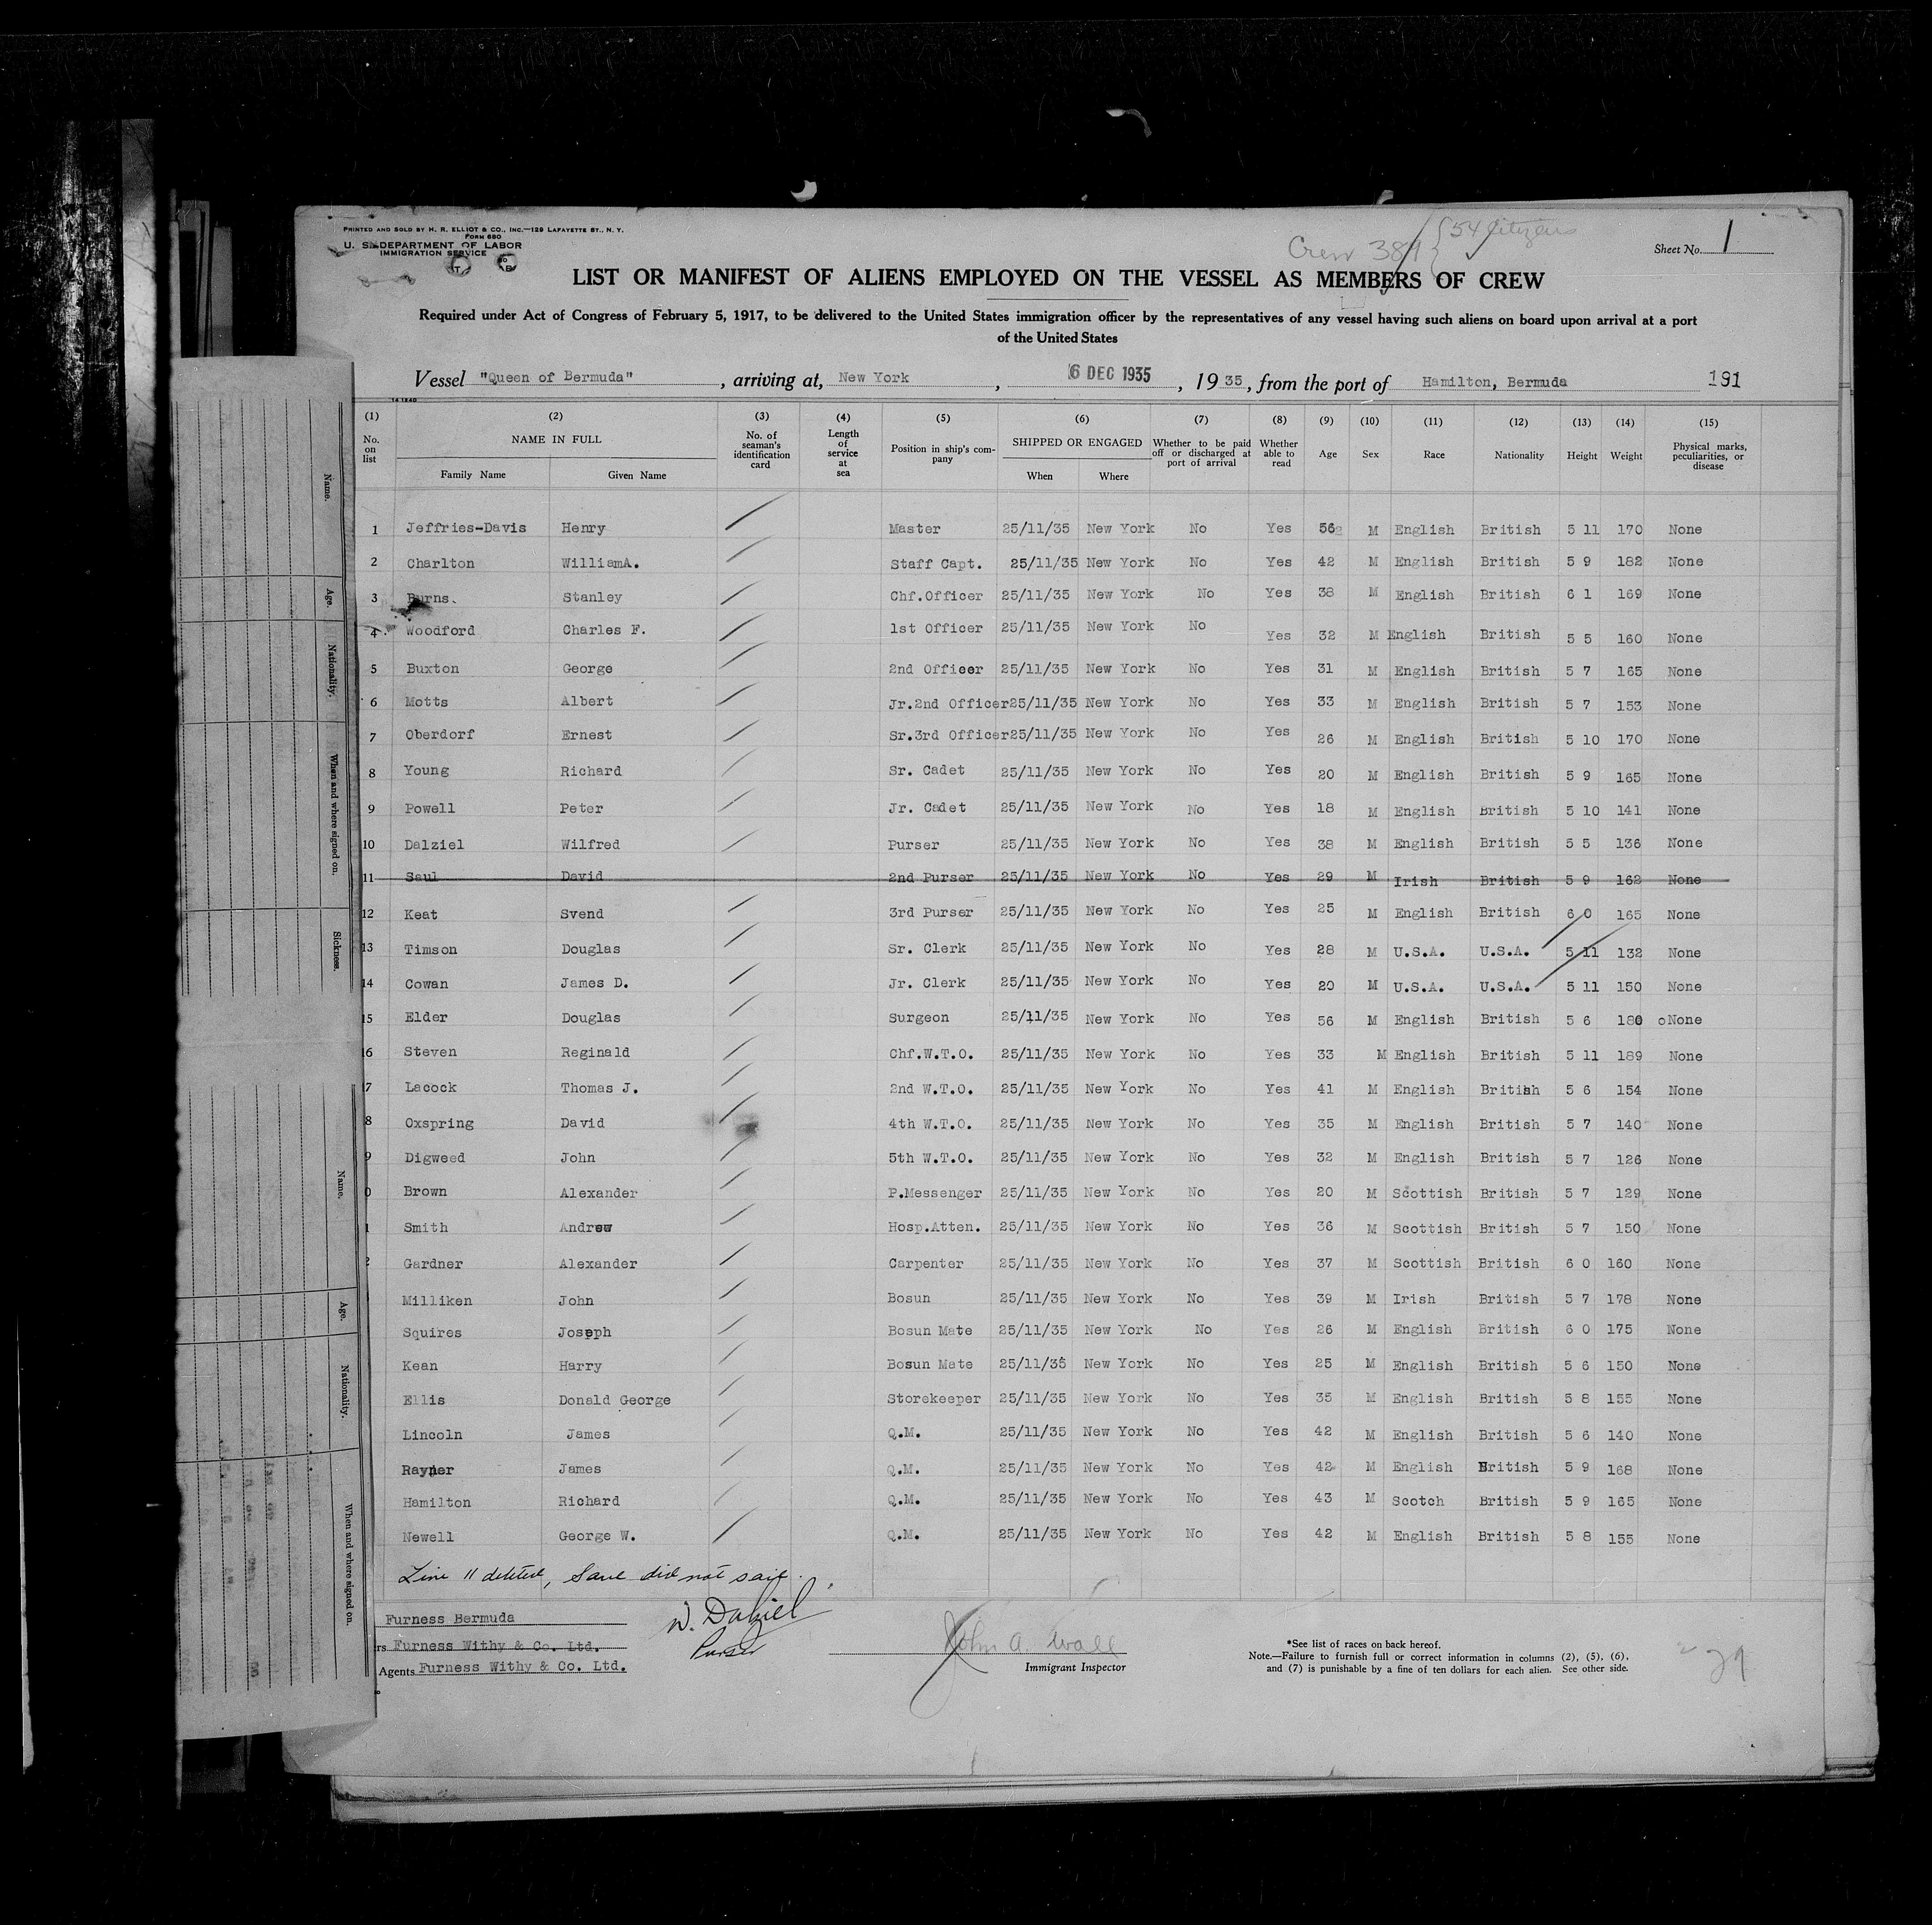 PRINTED AND SOLD BY H. R. ELLIOT & CO., INC.—129 LAFAYETTE ST., N. Y.
FORM 680
U. S. DEPARTMENT OF LABOR
IMMIGRATION SERVICE
Crew 389 { 54 citizens
Sheet No. 1
LIST OR MANIFEST OF ALIENS EMPLOYED ON THE VESSEL AS MEMBERS OF CREW
Required under Act of Congress of February 5, 1917, to be delivered to the United States immigration officer by the representatives of any vessel having such aliens on board upon arrival at a port
of the United States
Vessel "Queen of Bermuda", arriving at, New York, 6 DEC 1935, 1935, from the port of Hamilton, Bermuda 191
(1) No. on list (2) NAME IN FULL Family Name Given Name (3) No. of seaman's identification card (4) Length of service at sea (5) Position in ship's company (6) SHIPPED OR ENGAGED When Where (7) Whether to be paid off or discharged at port of arrival (8) Whether able to read (9) Age (10) Sex (11) Race (12) Nationality (13) Height (14) Weight (15) Physical marks, peculiarities, or disease
1 Jeffries-Davis Henry Master 25/11/35 New York No Yes 56 M English British 5 11 170 None
2 Charlton WilliamA. Staff Capt. 25/11/35 New York No Yes 42 M English British 5 9 182 None
3 Burns Stanley Chf.Officer 25/11/35 New York No Yes 38 M English British 6 1 169 None
4 Woodford Charles F. 1st Officer 25/11/35 New York No Yes 32 M English British 5 5 160 None
5 Buxton George 2nd Officer 25/11/35 New York No Yes 31 M English British 5 7 165 None
6 Motts Albert Jr.2nd Officer 25/11/35 New York No Yes 33 M English British 5 7 153 None
7 Oberdorf Ernest Sr.3rd Officer 25/11/35 New York No Yes 26 M English British 5 10 170 None
8 Young Richard Sr. Cadet 25/11/35 New York No Yes 20 M English British 5 9 165 None
9 Powell Peter Jr. Cadet 25/11/35 New York No Yes 18 M English British 5 10 141 None
10 Dalziel Wilfred Purser 25/11/35 New York No Yes 38 M English British 5 5 136 None
11 Saul David 2nd Purser 25/11/35 New York No Yes 29 M Irish British 5 9 162 None
12 Keat Svend 3rd Purser 25/11/35 New York No Yes 25 M English British 6 0 165 None
13 Timson Douglas Sr. Clerk 25/11/35 New York No Yes 28 M U.S.A. U.S.A. 5 11 132 None
14 Cowan James D. Jr. Clerk 25/11/35 New York No Yes 20 M U.S.A. U.S.A. 5 11 150 None
15 Elder Douglas Surgeon 25/11/35 New York No Yes 56 M English British 5 6 180 None
16 Steven Reginald Chf.W.T.O. 25/11/35 New York No Yes 33 M English British 5 11 189 None
7 Lacock Thomas J. 2nd W.T.O. 25/11/35 New York No Yes 41 M English British 5 6 154 None
8 Oxspring David 4th W.T.O. 25/11/35 New York No Yes 35 M English British 5 7 140 None
9 Digweed John 5th W.T.O. 25/11/35 New York No Yes 32 M English British 5 7 126 None
0 Brown Alexander P.Messenger 25/11/35 New York No Yes 20 M Scottish British 5 7 129 None
1 Smith Andrew Hosp.Atten. 25/11/35 New York No Yes 36 M Scottish British 5 7 150 None
2 Gardner Alexander Carpenter 25/11/35 New York No Yes 37 M Scottish British 6 0 160 None
Milliken John Bosun 25/11/35 New York No Yes 39 M Irish British 5 7 178 None
Squires Joseph Bosun Mate 25/11/35 New York No Yes 26 M English British 6 0 175 None
Kean Harry Bosun Mate 25/11/35 New York No Yes 25 M English British 5 6 150 None
Ellis Donald George Storekeeper 25/11/35 New York No Yes 35 M English British 5 8 155 None
Lincoln James Q.M. 25/11/35 New York No Yes 42 M English British 5 6 140 None
Rayner James Q.M. 25/11/35 New York No Yes 42 M English British 5 9 168 None
Hamilton Richard Q.M. 25/11/35 New York No Yes 43 M Scotch British 5 9 165 None
Newell George W. Q.M. 25/11/35 New York No Yes 42 M English British 5 8 155 None
Line 11 deleted, Saul did not sail.
Furness Bermuda
rs Furness Withy & Co. Ltd.
Agents Furness Withy & Co. Ltd.
W. Dalziel
Purser
John A. Wall
Immigrant Inspector
*See list of races on back hereof.
Note.—Failure to furnish full or correct information in columns (2), (5), (6),
and (7) is punishable by a fine of ten dollars for each alien. See other side.
29
Name.
Age.
Nationality.
When and where signed on.
Sickness.
Name.
Age.
Nationality.
When and where signed on.